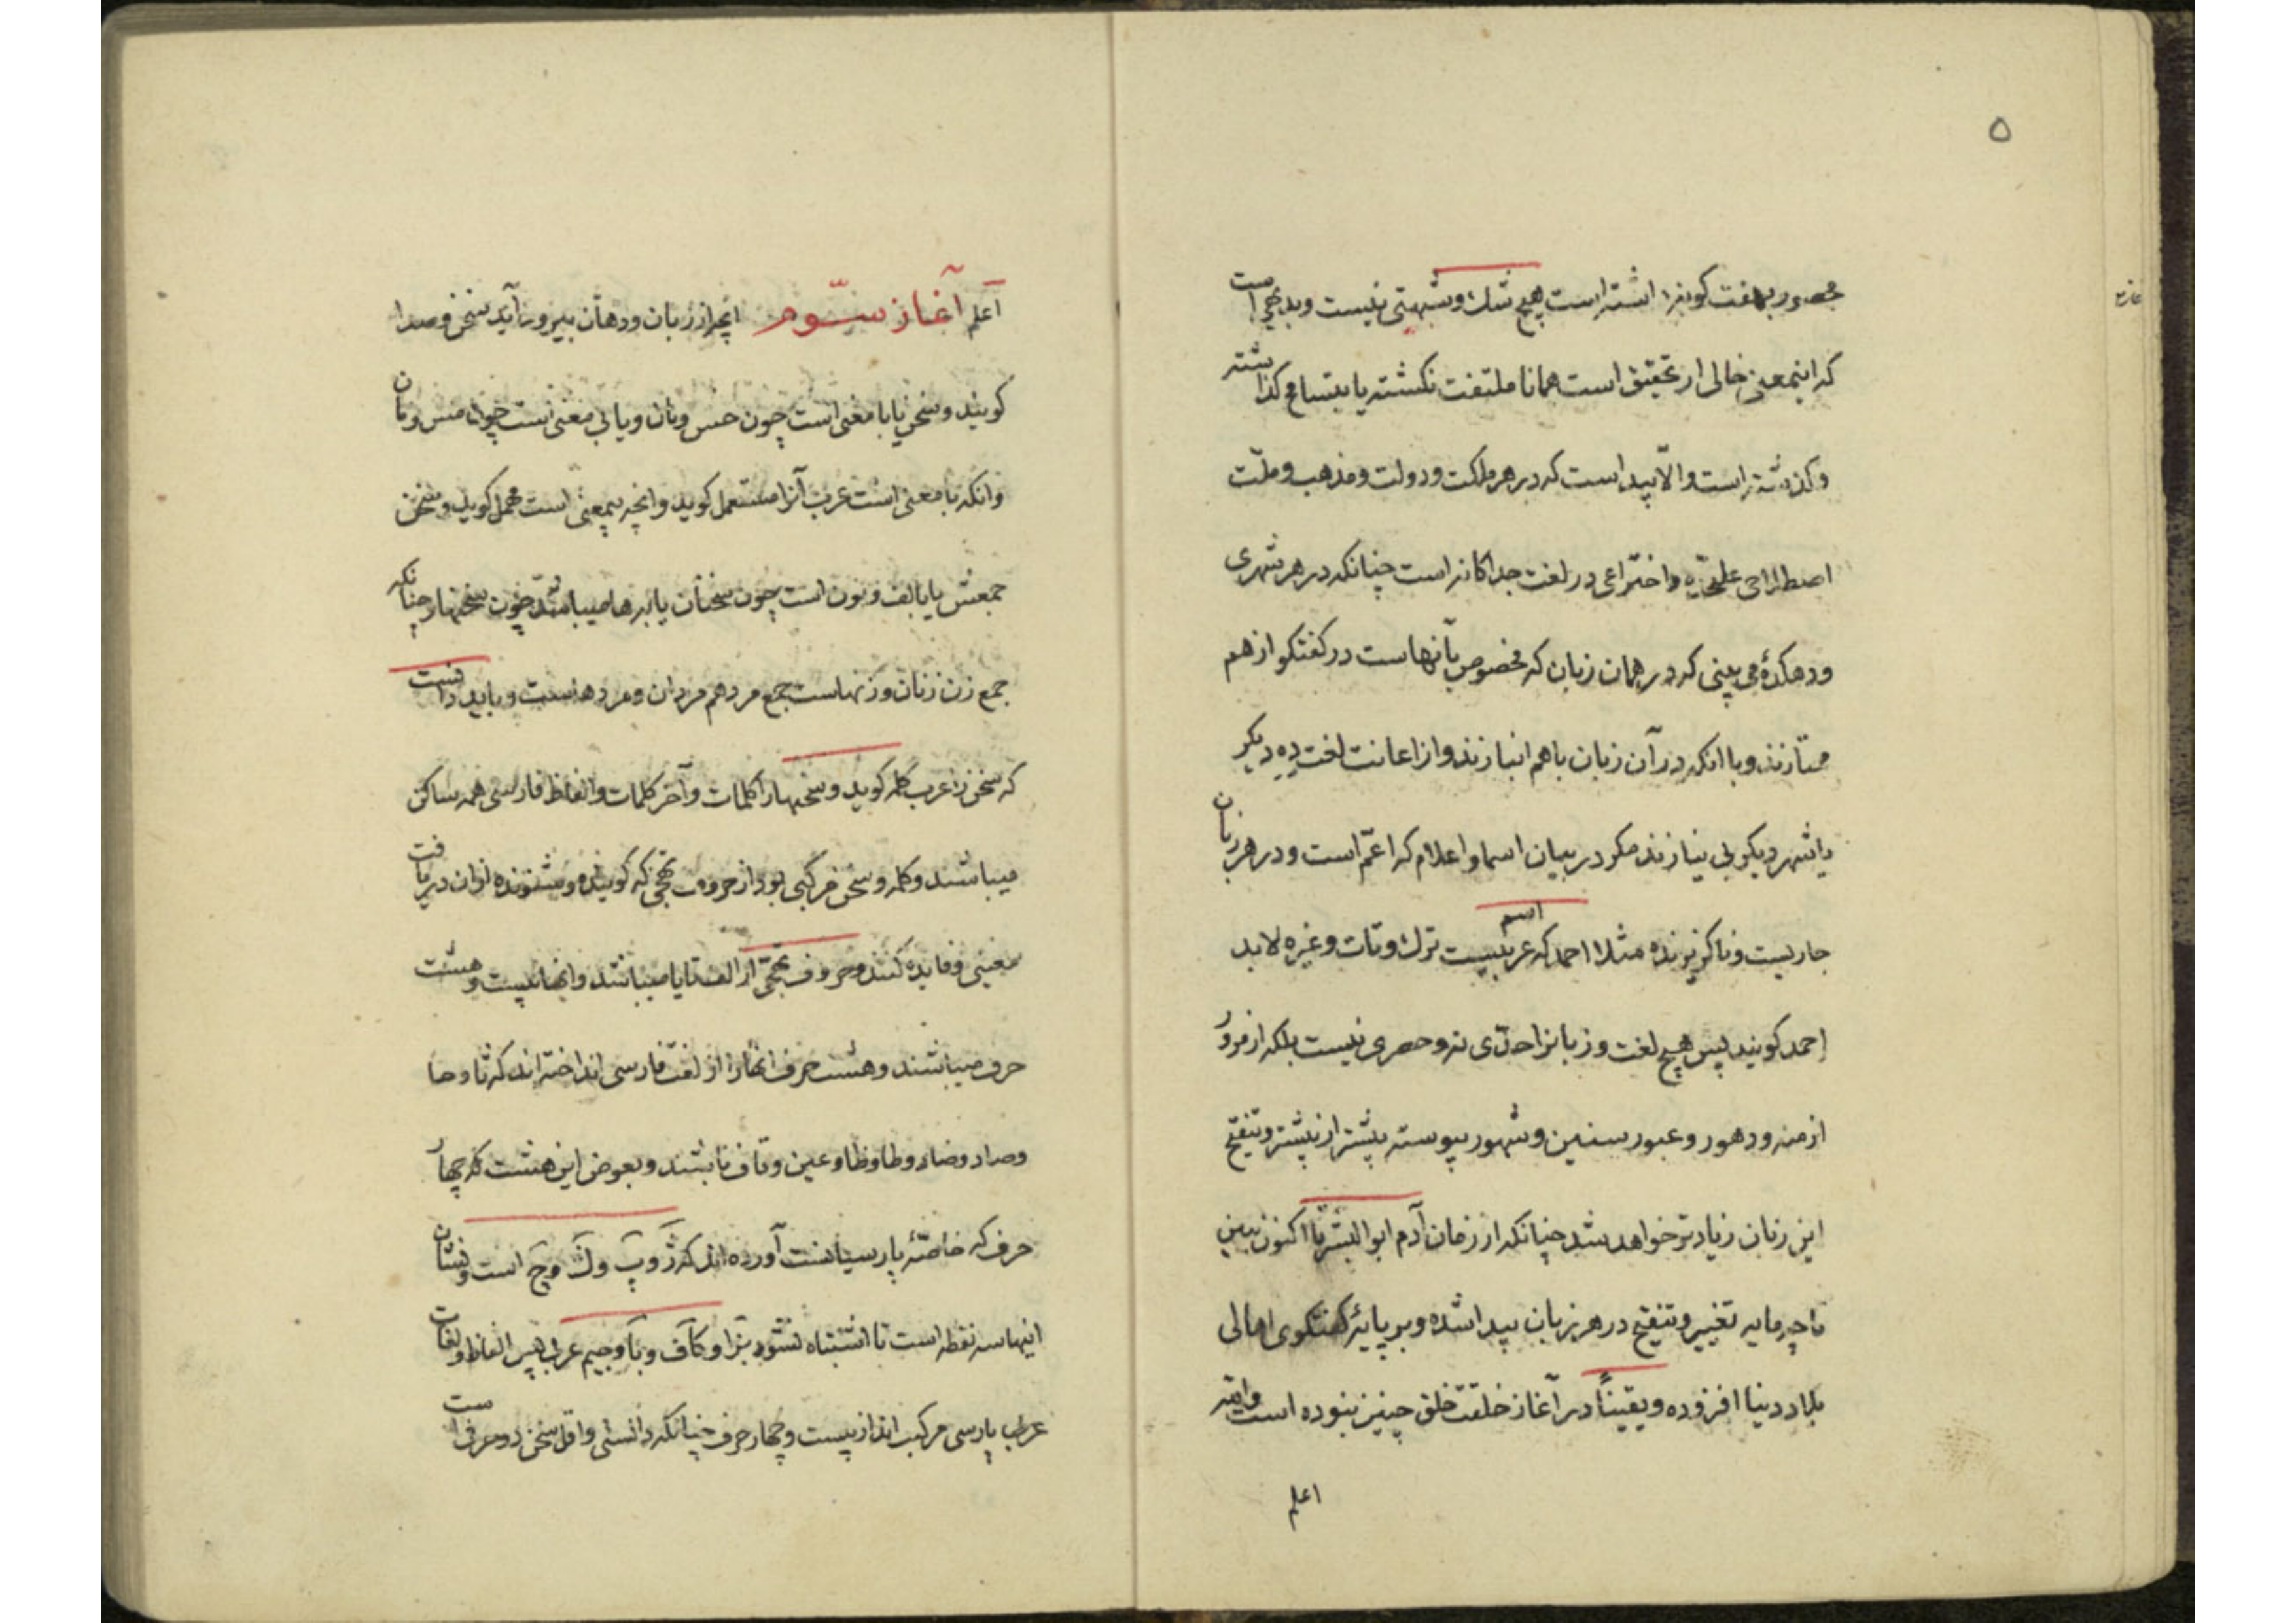 ۵
محصور بهفت گونه‌اش داشته است هیچ شک و شبهتی نیست و بدیهی است
که اینمعنی خالی از تحقیق است همانا ملتفت نکشته یا بتسامح گذاشته
و گذشته است والّا پیدا است که در هر مملکت و دولت و مذهب و ملّت
اصطلاحی علیحدّه و اختراعی در لغت جداکانه است چنانکه در هر شهری
و دهکدهٔ می بینی که در همان زبان که مخصوص بآنهاست در کفتکو از هم
ممتازند و با انکه در آن زبان باهم انبازند و از اعانت لغت ده دیکر
یا شهر دیکر بی نیازند مکر در بیان اسما و اعلام که اعمّ است و در هر زبان
جاریست و ناکزیرنده مثلا احمد که اسم عربیست ترک و تات و غیره لابد
احمد کویند پس هیچ لغت و زبانرا حدّی نه و حصری نیست بلکه از مرور
ازمنه و دهور و عبور سنین و شهور پیوسته بیشتر از پیشتر و تنقیح
این زبان زیادتر خواهد شد چنانکه از زمان آدم ابوالبشر تا اکنون ببین
تا چه مایه تغییر و تنقیح در هر زبان پیدا شده و بر پایهٔ کفتکوی اهالی
بلاد دنیا افزوده و یقیناً در آغاز خلقت خلق چنین نبوده است والله
اعلم
اعلم آغاز سوّم انچه از زبان و دهان بیرون آید سخن و صدا
کویند و سخن یا با معنی است چون حس و نان و یا بی معنی است چون مس و مان
و انکه با معنی است عرب آنرا مستعمل کوید و انچه بیمعنی است مهمل کوید و سخن
جمعش یا بالف و نون است چون سخنان یا بر ها میباشد چون سخنها چنانکه
جمع زن زنان و زنهاست جمع مرد هم مردان و مردهاست و باید دانست
که سخن را عرب کلمه کوید و سخنها را کلمات و آخر کلمات و الفاظ فارسی همه ساکن
میباشند و کلمه و سخن مرکبی بود از حروف تهجّی که کوینده و شنونده از ان دریافت
معنی و فایده کنند و حروف تهجّی از الف تا یا میباشند و انها بیست و هشت
حرف میباشند و هشت حرف انها را از لغت فارسی انداخته اند که ثا و حا
و صاد و ضاد و طا و ظا و عین و قاف باشند و بعوض این هشت که چهار
حرف که خاصّهٔ پارسیانست آورده اند که ژ و پ و ک و چ است و نشان
اینها سه نقطه است تا اشتباه نشود بزا و کاف و با و جیم عربی پس الفاظ و لغات
عرب پارسی مرکب اند از بیست و چهار حرف چنانکه دانستی و اقل سخن دو حرفی است